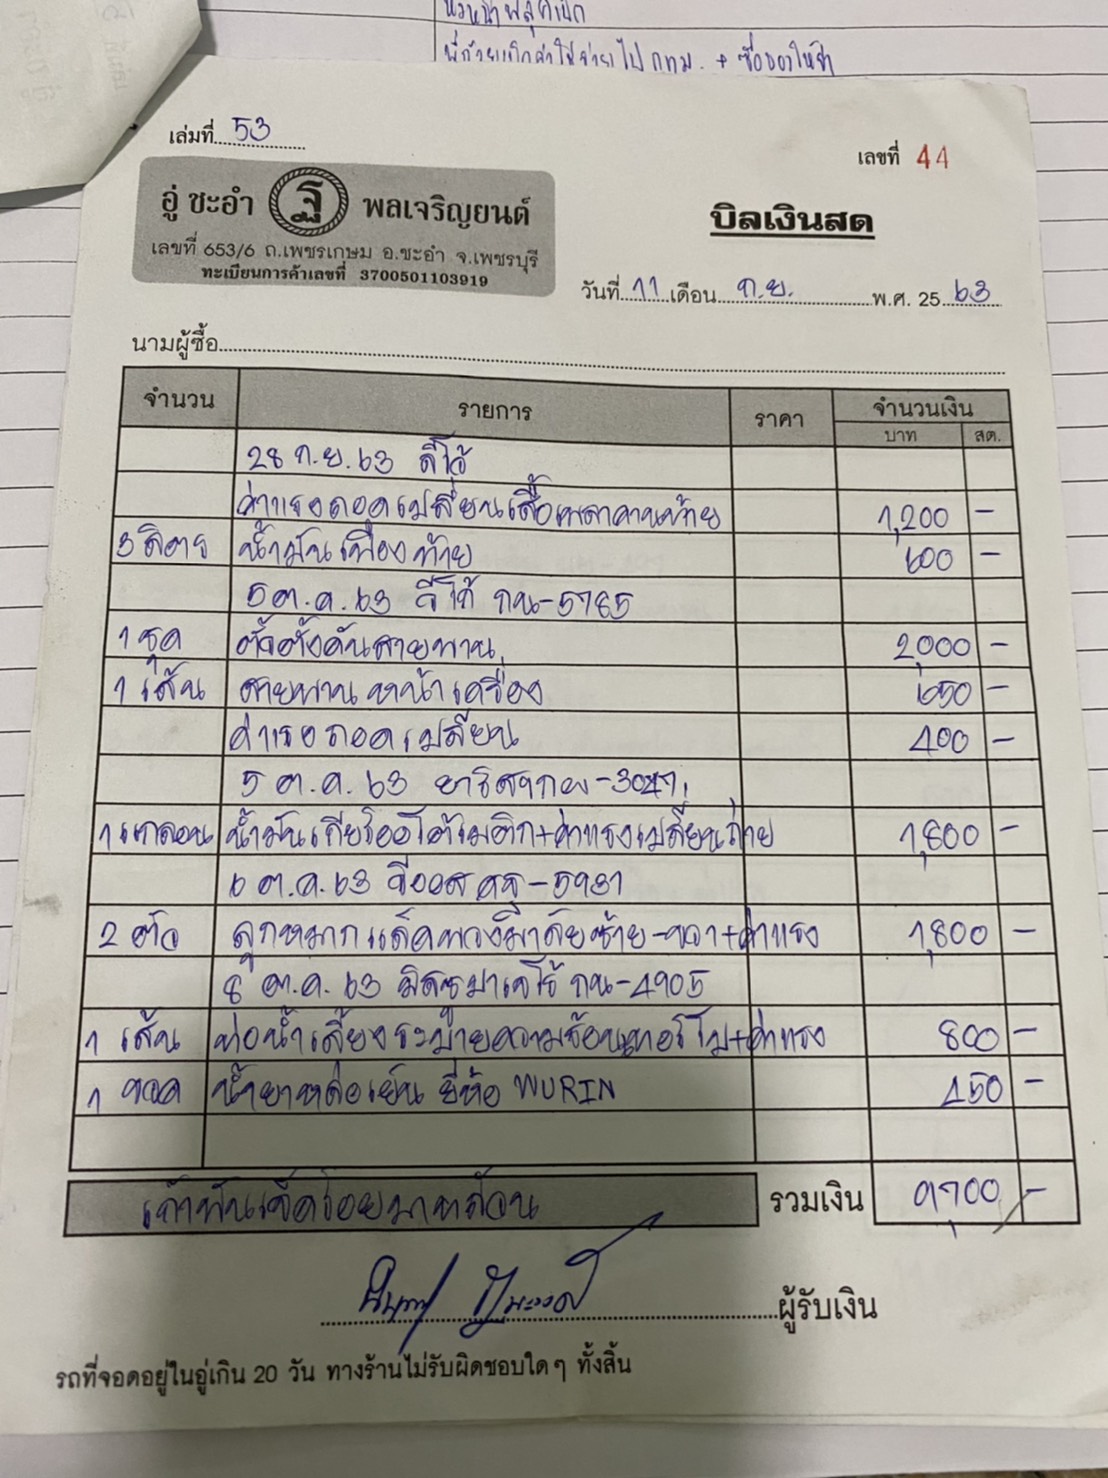 พี่ก้วยเบิกค่าใช้จ่ายไป กทม. + ซื้อของให้
เล่มที่ 53
เลขที่ 44
อู่ ชะอำ ฐ พลเจริญยนต์
เลขที่ 653/6 ถ.เพชรเกษม อ.ชะอำ จ.เพชรบุรี
ทะเบียนการค้าเลขที่ 3700501103919
บิลเงินสด
วันที่ 11 เดือน ก.ย. พ.ศ. 25 63
นามผู้ซื้อ
จำนวน รายการ ราคา จำนวนเงิน
บาท สต.
28 ก.ย. 63 ดีโอ้
ค่าแรงถอดเปลี่ยนเสื้อเพลาคานท้าย 1,200 -
3 ลิตร น้ำมันเฟืองท้าย 600 -
5 ต.ค. 63 วีโก้ กน-5785
1 ชุด ตัวตั้งดันสายพาน 2,000 -
1 เส้น สายพานหน้าเครื่อง 650 -
ค่าแรงถอดเปลี่ยน 400 -
5 ต.ค. 63 ยาริส
1 แกลอน น้ำมันเกียร์ออโต้เมติก+ค่าแรงเปลี่ยนถ่าย 1,800 -
6 ต.ค. 63 วีออส 5931
2 ตัว ลูกหมากแล็คพวงมาลัยซ้าย-ขวา+ค่าแรง 1,800 -
8 ต.ค. 63 มิตซูปาเจโร่ กน-4905
1 เส้น ท่อน้ำเลี้ยงระบายความร้อนเทอร์โบ+ค่าแรง 800 -
1 ขวด น้ำยาหล่อเย็น ยี่ห้อ WURIN 450 -
เก้าพันเจ็ดร้อยบาทถ้วน รวมเงิน 9,700 -
ผู้รับเงิน
รถที่จอดอยู่ในอู่เกิน 20 วัน ทางร้านไม่รับผิดชอบใดๆ ทั้งสิ้น